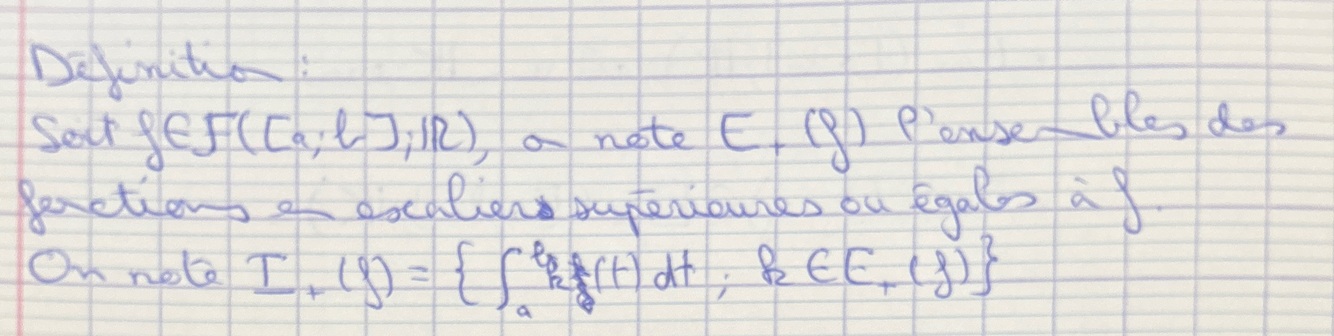 Définition :
Soit f∈F([a;b];ℝ), on note E₊(f) l'ensembles des
fonctions en escaliers supérieures ou égales à f.
On note I₊(f) = { ∫ₐᵇ h(t) dt ; h ∈ E₊(f)}